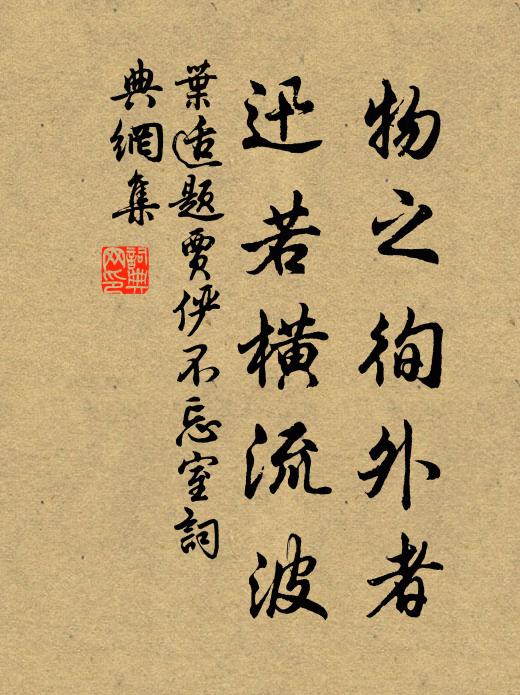 物之徇外者
迅若橫流波
葉适題賈俠不忘室詞
典網集
詞典
网印